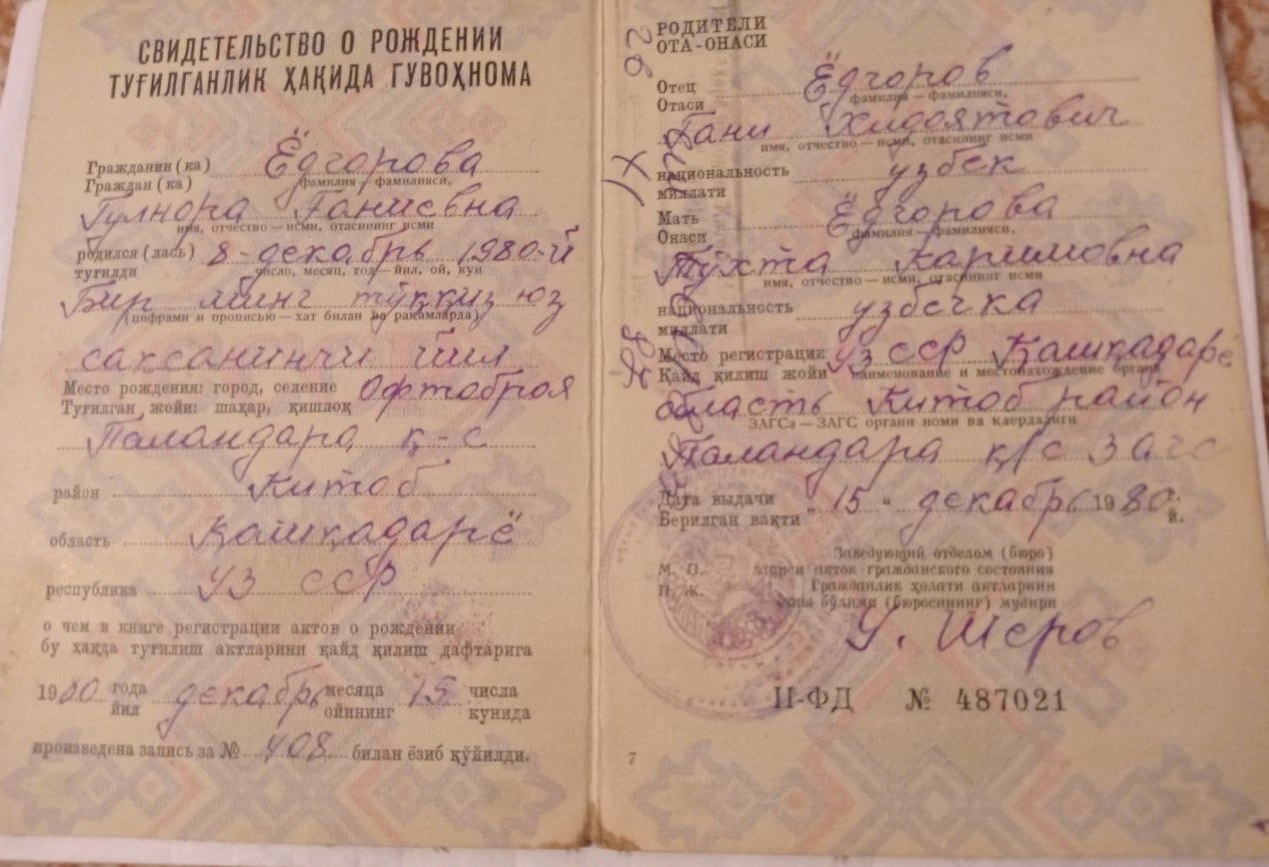 СВИДЕТЕЛЬСТВО О РОЖДЕНИИ
ТУҒИЛГАНЛИК ҲАҚИДА ГУВОҲНОМА
Гражданин (ка) Ёдгорова
Граждан (ка) фамилия — фамилияси,
Гулнора Ғаниевна
имя, отчество — исми, отасининг исми
родился (лась) 8-декабрь 1980-й
туғилди число, месяц, год — йил, ой, кун
Бир минг тўққиз юз
(цифрами и прописью — хат билан ва рақамларда)
саксанинчи йил
Место рождения: город, селение Офтоброя
Туғилган жойи: шаҳар, қишлоқ
Паландара қ-с
район Китоб
область Қашқадарё
республика Уз ССР
о чем в книге регистрации актов о рождении
бу ҳақда туғилиш актларини қайд қилиш дафтарига
1980 года декабрь месяца 15 числа
йил ойининг кунида
произведена запись за № 408 билан ёзиб қўйилди.
РОДИТЕЛИ
ОТА-ОНАСИ
Отец Ёдгоров
Отаси фамилия — фамилияси,
Ғани Хидоятович
имя, отчество — исми, отасининг исми
национальность узбек
миллати
Мать Ёдгорова
Онаси фамилия — фамилияси,
Тўхта Каримовна
имя, отчество — исми, отасининг исми
национальность узбечка
миллати
Место регистрации Уз ССР Қашқадарё
Қайд қилиш жойи наименование и местонахождение органа
область Китоб район
ЗАГСа — ЗАГС органи номи ва қаердалиги
Паландара қ/с Загс
Дата выдачи „15“ декабрь 1980.
Берилган вақти й.
Заведующий отделом (бюро)
М. П. записи актов гражданского состояния
П. Ж. Гражданлик ҳолати актларини
ёзиш бўлими (бюросининг) мудири
У. Шеров
II-ФД № 487021
7